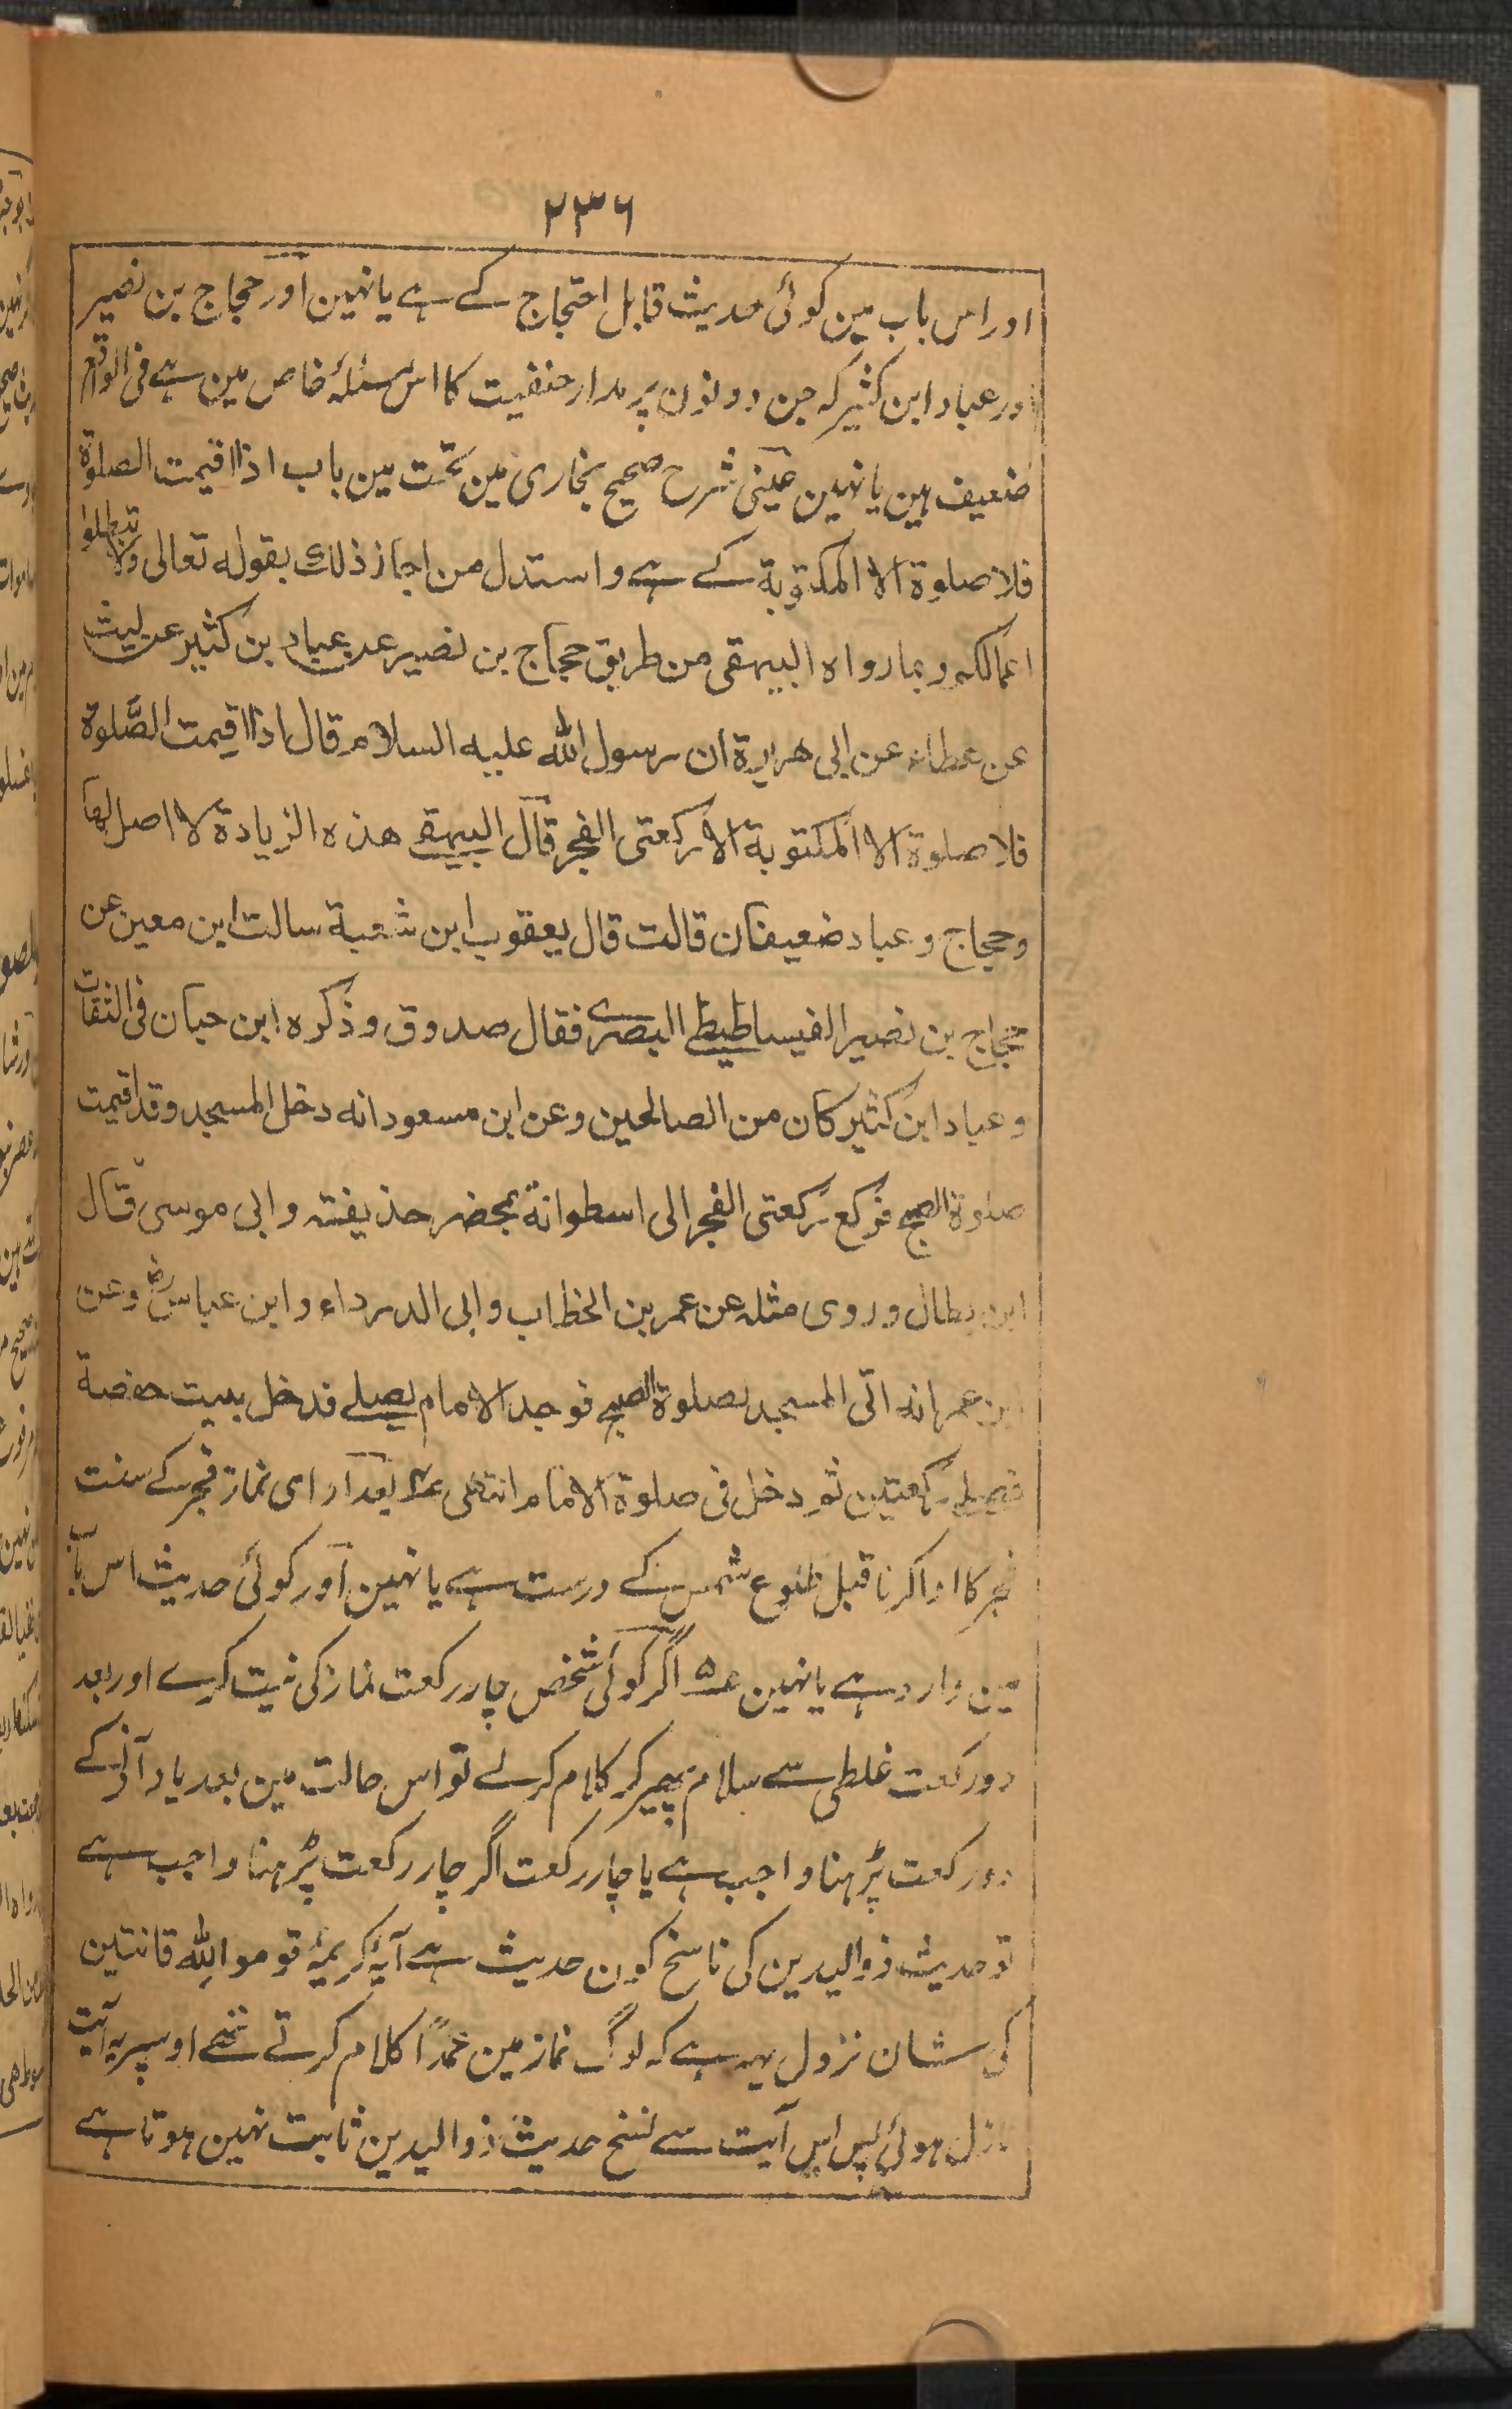 ٢٣٦
اور اس باب مین کوئی حدیث قابل احتجاج کے ہے یا نہین اور حجاج بن نصیر
اور عباد ابن کثیر کہ جن دونون پر مدار حنفیت کا اس مسئلہٴ خاص مین ہے فی الواقع
ضعیف ہین یا نہین عینی شرح صحیح بخاری مین تحت مین باب اذا اقیمت الصلوة
فلا صلوة الا المکتوبة کے ہے واستدل من اجاز ذلك بقوله تعالی ولا تبطلوا
اعمالکم وبما رواه البیهقی من طریق حجاج بن نصیر عن عباد بن کثیر عن لیث
عن عطاء عن ابی هریرة ان رسول الله علیه السلام قال اذا اقیمت الصَّلوة
فلا صلوة الا المکتوبة الا رکعتی الفجر قال البیهقے هذه الزیادة لا اصل لها
وحجاج وعباد ضعیفان قالت قال یعقوب ابن شعبة سالت ابن معین عن
حجاج بن نصیر الفیساطیطے البصرے فقال صدوق وذکره ابن حبان فی الثقات
وعباد ابن کثیر کان من الصالحین وعن ابن مسعود انه دخل المسجد وقد اقیمت
صلوة الصبح فرکع رکعتی الفجر الی اسطوانة بمحضر حذیفة وابی موسی قال
ابن بطال وروی مثله عن عمر بن الخطاب وابی الدرداء وابن عباس رضؓ وعن
ابن عمر انه اتی المسجد لصلوة الصبح فوجد الامام یصلے فدخل بیت حفصة
فصلے رکعتین ثم دخل فی صلوة الامام انتهی ع۴ بعد ادای نماز فجر کے سنت
فجر کا ادا کرنا قبل طلوع شمس کے درست ہے یا نہین اور کوئی حدیث اس باب
مین وارد ہے یا نہین ع۵ اگر کوئی شخص چار رکعت نماز کی نیت کرے اور بعد
دو رکعت غلطی سے سلام پھیر کر کلام کرلے تو اس حالت مین بعد یاد آنے کے
دو رکعت پڑہنا واجب ہے یا چار رکعت اگر چار رکعت پڑہنا واجب ہے
تو حدیث ذو الیدین کی ناسخ کون حدیث ہے آیۂ کریمۂ قوموا لِلّٰه قانتین
کی شان نزول یہہ ہے کہ لوگ نماز مین عمداً کلام کرتے تھے اوسپر یہ آیت
نازل ہوئی پس اس آیت سے نسخ حدیث ذو الیدین ثابت نہین ہوتا ہے